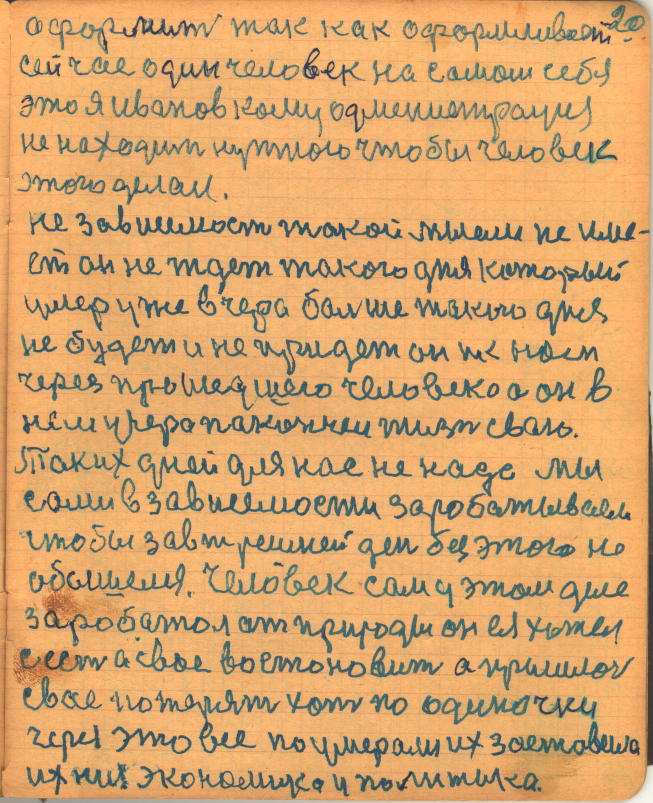 20
аформит так как аформливает
сейчас один человек на самом себя
это я иванов кому одменистрацыя
не находит нужного чтобы человек
этого делал.
не зависемост такой мысли не име-
ет он не ждет такого дня который
умер уже вчера болше такого дня
не будет и не придет он ж нам
через прошедшего человека а он в
нем учера пакончел жизн сваю.
Таких дней для нас не надо мы
сами в зависемости заробатываем
чтобы завтрешней ден без этого не
обашелся. Человек сам у этом деле
заробатол от природы он ея хотел
сест а свае востоновит а
свае потерят хот по одиночки
через это все поумерали их заставела
их них экономика и политыка.